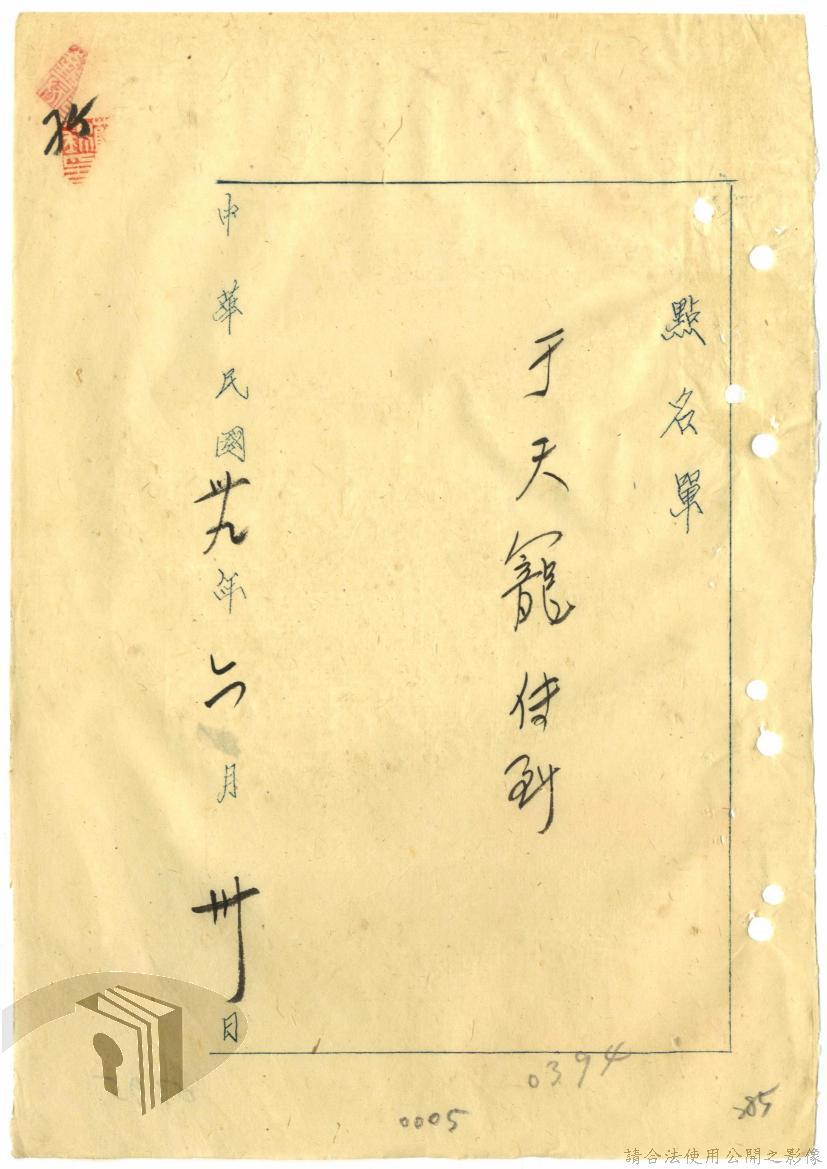 點名單
于天寵傳到
中華民國卅九年六月卅日
0394
0005
請合法使用公開之影像